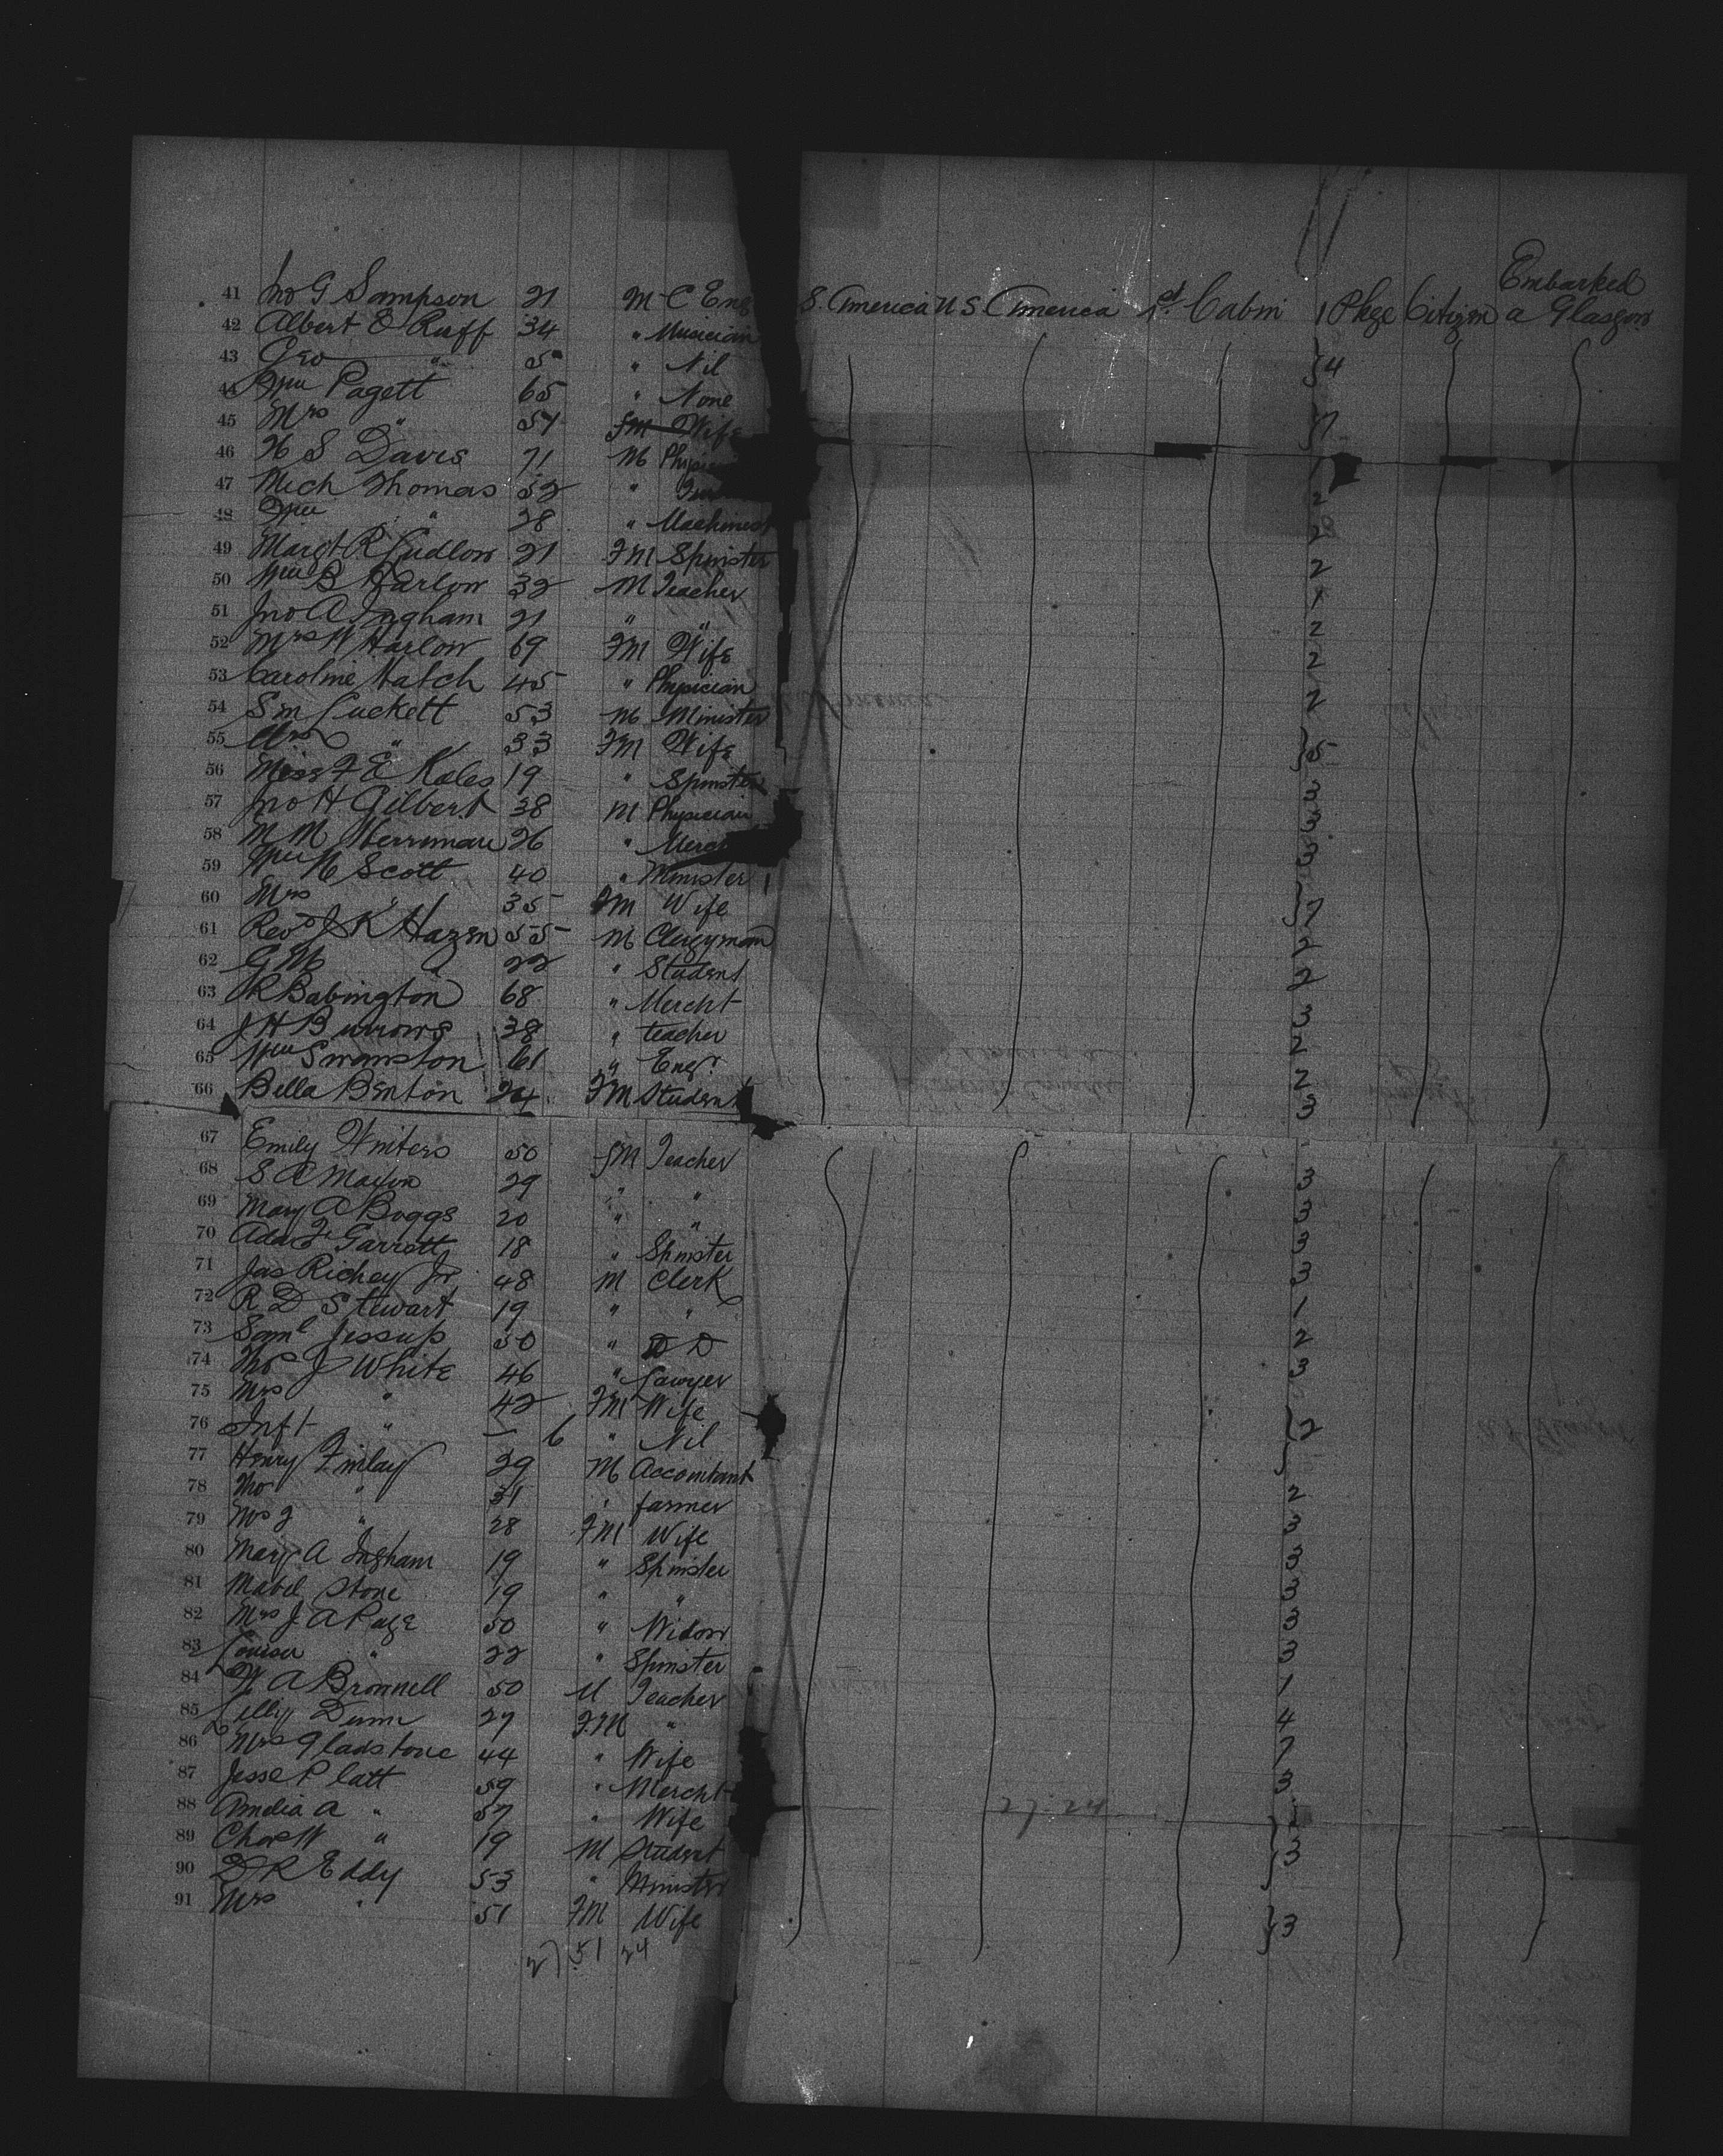 Embarked
41 Jno G Sampson 21 M C Eng S. America U S. America 1st Cabin 1 Pkge Citizen a Glasgow
42 Albert E Ruff 34 " Musician
43 Geo " 5 " Nil } 4
44 Wm Pagett 65 " None
45 Mrs " 54 FM Wife } 7
46 H S Davis 71 M Physici 1
47 Mich Thomas 52 " 2
48 Wm " 28 " Machinest 2
49 Margt R Ludlow 21 FM Spinster 2
50 Wm B Harlow 32 M Teacher 1
51 Jno A Ingham 21 " " 2
52 Mrs W Harlow 69 FM Wife 2
53 Caroline Hatch 45 " Physician 2
54 S m Luckett 53 M Minister
55 Mrs " 33 FM Wife } 5
56 Miss F E Kales 19 " Spinster 3
57 Jno H Gilbert 38 M Physician 3
58 M M Merriman 26 " Merch 3
59 Wm N Scott 40 " Minister
60 Mrs " 35 FM Wife } 7
61 Revd J K Hazen 55 M Clergyman 2
62 G M 22 " Student 2
63 R Babington 68 " Mercht 3
64 J H Burrows 38 " teacher 2
65 Wm Swanston 61 " Engr. 2
66 Bella Benton 24 FM Student 3
67 Emily Winters 50 FM Teacher
68 S A Maxon 29 " " 3
69 Mary A Boggs 20 " " 3
70 Ada F Garrott 18 " Spinster 3
71 Jas Richey Jr 48 M Clerk 3
72 R D Stewart 19 " " 1
73 Saml Jessup 50 " D D 2
74 Thos J White 46 " Lawyer 3
75 Mrs " 42 FM Wife
76 Inft " — 6 " Nil } 2
77 Henry Finlay 29 M Accountant
78 Tho " 31 " farmer 2
79 Mrs J " 28 FM Wife 3
80 Mary A Ingham 19 " Spinster 3
81 Mabel Stone 19 " " 3
82 Mrs J A Page 50 " Widow 3
83 Louisa " 22 " Spinster 3
84 W A Brownell 50 M Teacher 1
85 Lilly Dunn 27 FM " 4
86 Mrs Gladstone 44 " Wife 7
87 Jesse Platt 59 " Mercht 3
88 Amelia A " 57 " Wife 27.24
89 Chas W " 19 M Student } 3
90 D R Eddy 53 " Minister
91 Mrs " 51 FM Wife } 3
27 51 24